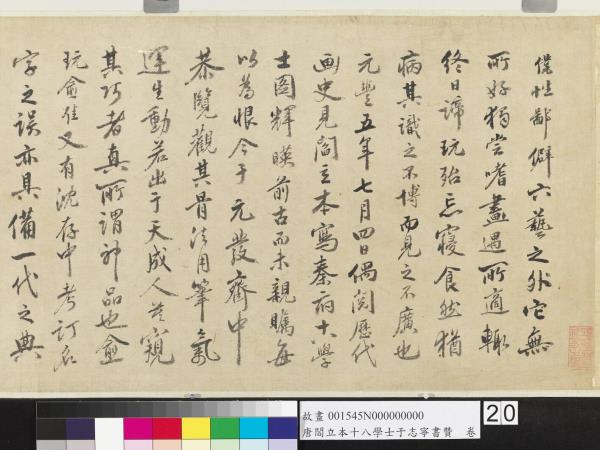 僕性鄙僻六藝之外它無
所好獨嘗嗜畫遇所適輒
終日諦玩殆忘寢食然猶
病其識之不博而見之不廣也
元豐五年七月四日偶閱歷代
画史見閻立本寫秦府十八學
士圖輝暎前古而未親矚每
以為恨今于元發齋中
恭覽觀其骨法用筆氣
運生動若出于天成人莫窺
其巧者真所謂神品也僉
玩僉佳又有沈存中考訂名
字之誤亦具備一代之典
故畫 001545N000000000
唐閻立本十八學士于志寧書贊 卷
20